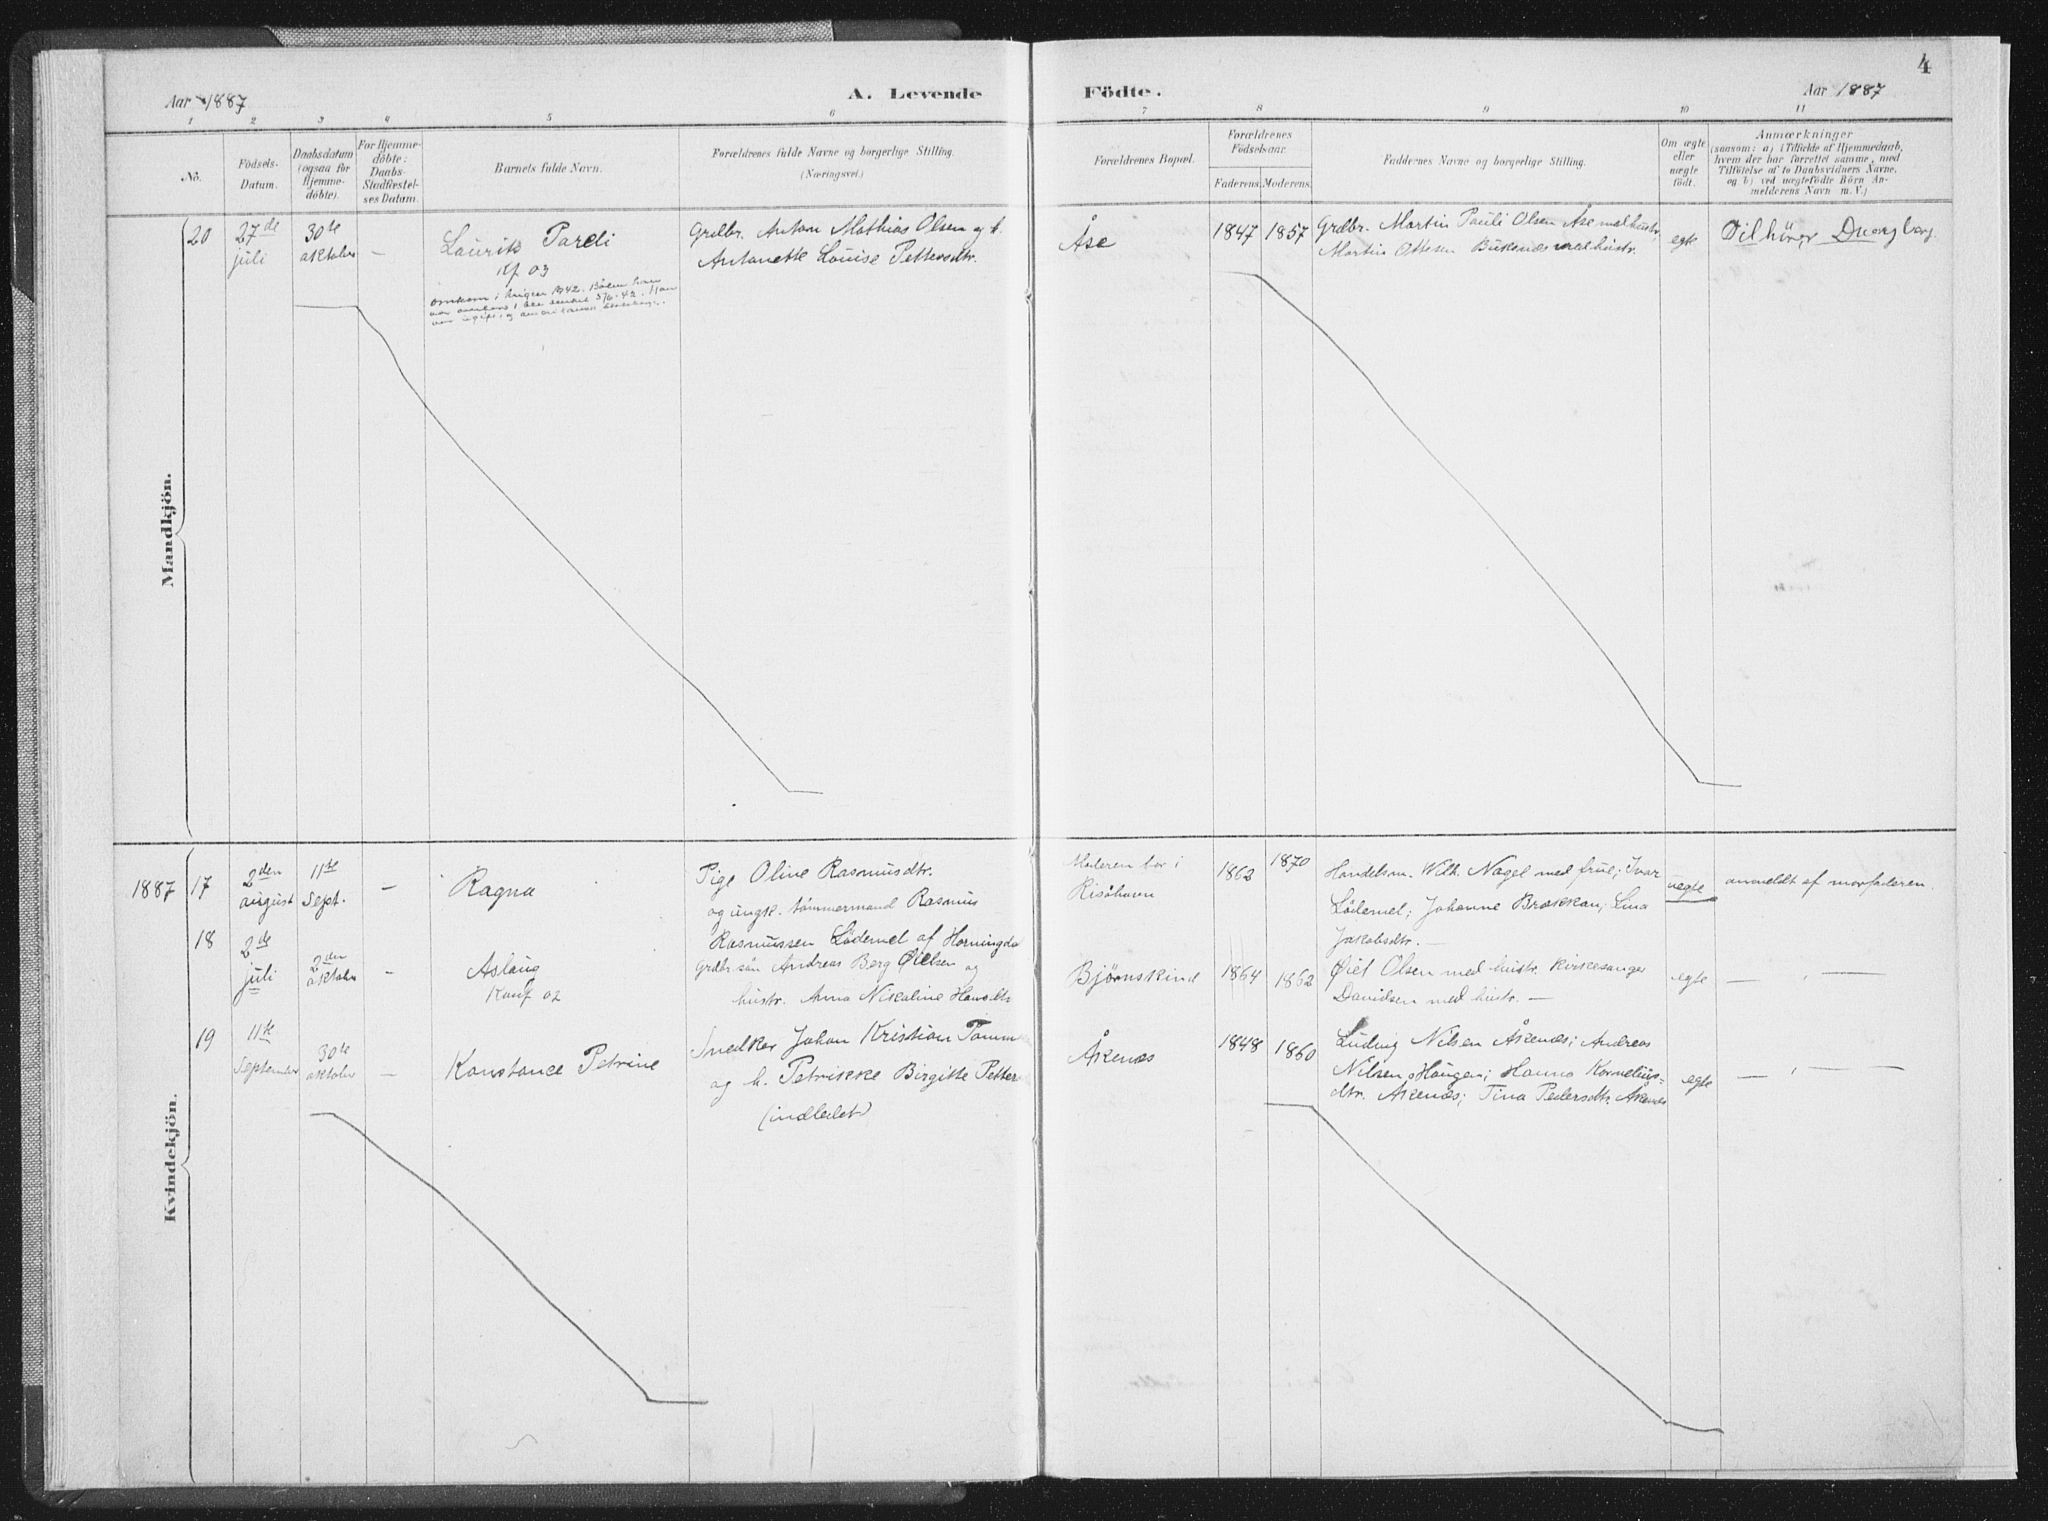 4
Aar 1887
A. Levende Födte.
Aar 1887
1 2 3 4 5 6 7 8 9 10 11
No.
Födsels-
Datum.
Daabsdatum
(ogsaa for
Hjemme-
döbte).
For Hjemme-
döbte:
Daabs-
Stadfæstel-
ses Datum.
Barnets fulde Navn.
Forældrenes fulde Navne og borgerlige Stilling.
(Næringsvei.)
Forældrenes Bopæl.
Forældrenes
Födselsaar.
Faderens. Moderens.
Faddernes Navne og borgerlige Stilling.
Om ægte
eller
uægte
født.
Anmærkninger
(saasom: a) i Tilfælde af Hjemmedaab,
hvem der har forrettet samme, med
Tilföielse af to Daabsvidners Navne,
og b) ved uægtefödte Börn An-
melderens Navn m. V.)
Mandkjön.
20
27de
juli
30te
oktober
—
Laurits Pareli
kf 03
omkom i krigen 1942.
Grdbr. Anton Mathias Olsen og h.
Antonette Louise Pettersdtr.
Åse
1847 1857
Grdbr. Martin Pauli Olsen Åse med hustr,
Martin Ottesen Buksnes med hustr.
egte
Tilhörer Dverg berg
Kvindekjön.
1887 17
2den
august
11te
Sept.
—
Ragna
Pige Oline Rasmusdtr.
og ungk. tömmermand Rasmus
Rasmussen Lödemel af Horningda
Moderen bor i
Risöhavn
1862 1870
Handelsm. Wilh. Nagel med frue; Ivar
Lödemel; Johanne Brækkan; Lina
Jakobsdtr. —
uegte
anmeldt af morfaderen.
18
2de
juli
2den
oktober
—
Aslaug
Konf 02
Grdbr.sön Andreas Berg Öielsen og
hustr. Anna Nikoline Hansdtr
Bjönnskind
1864 1862
Öiel Olsen med hustr. kirkesanger
Davidsen med hustr. —
egte
— " —
19
11te
September
30te
oktober
—
Konstance Petrine
Snedker Johan Kristian Tomm
og h. Petrikke Birgitte Petter
(indledet)
Åkenæs
1848 1860
Ludvig Nilsen Åkenæs; Andreas
Nilsen Haugen; Hanna Kornelius-
dtr. Åkenæs; Tina Pedersdtr. Åkenæs
egte
— " —